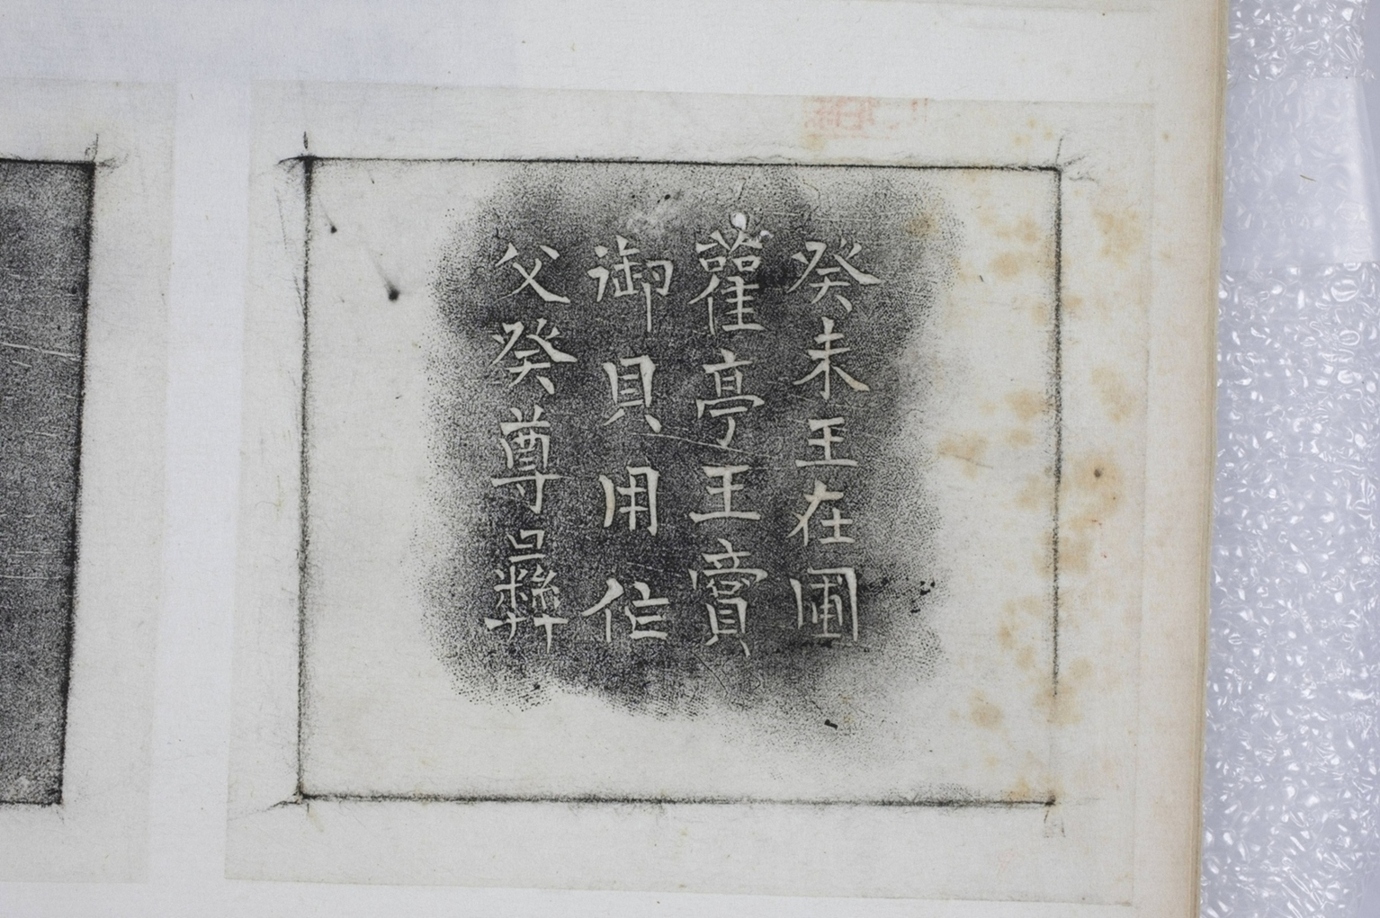 癸未王在圃
雚亭王賞
御貝用作
父癸尊彝